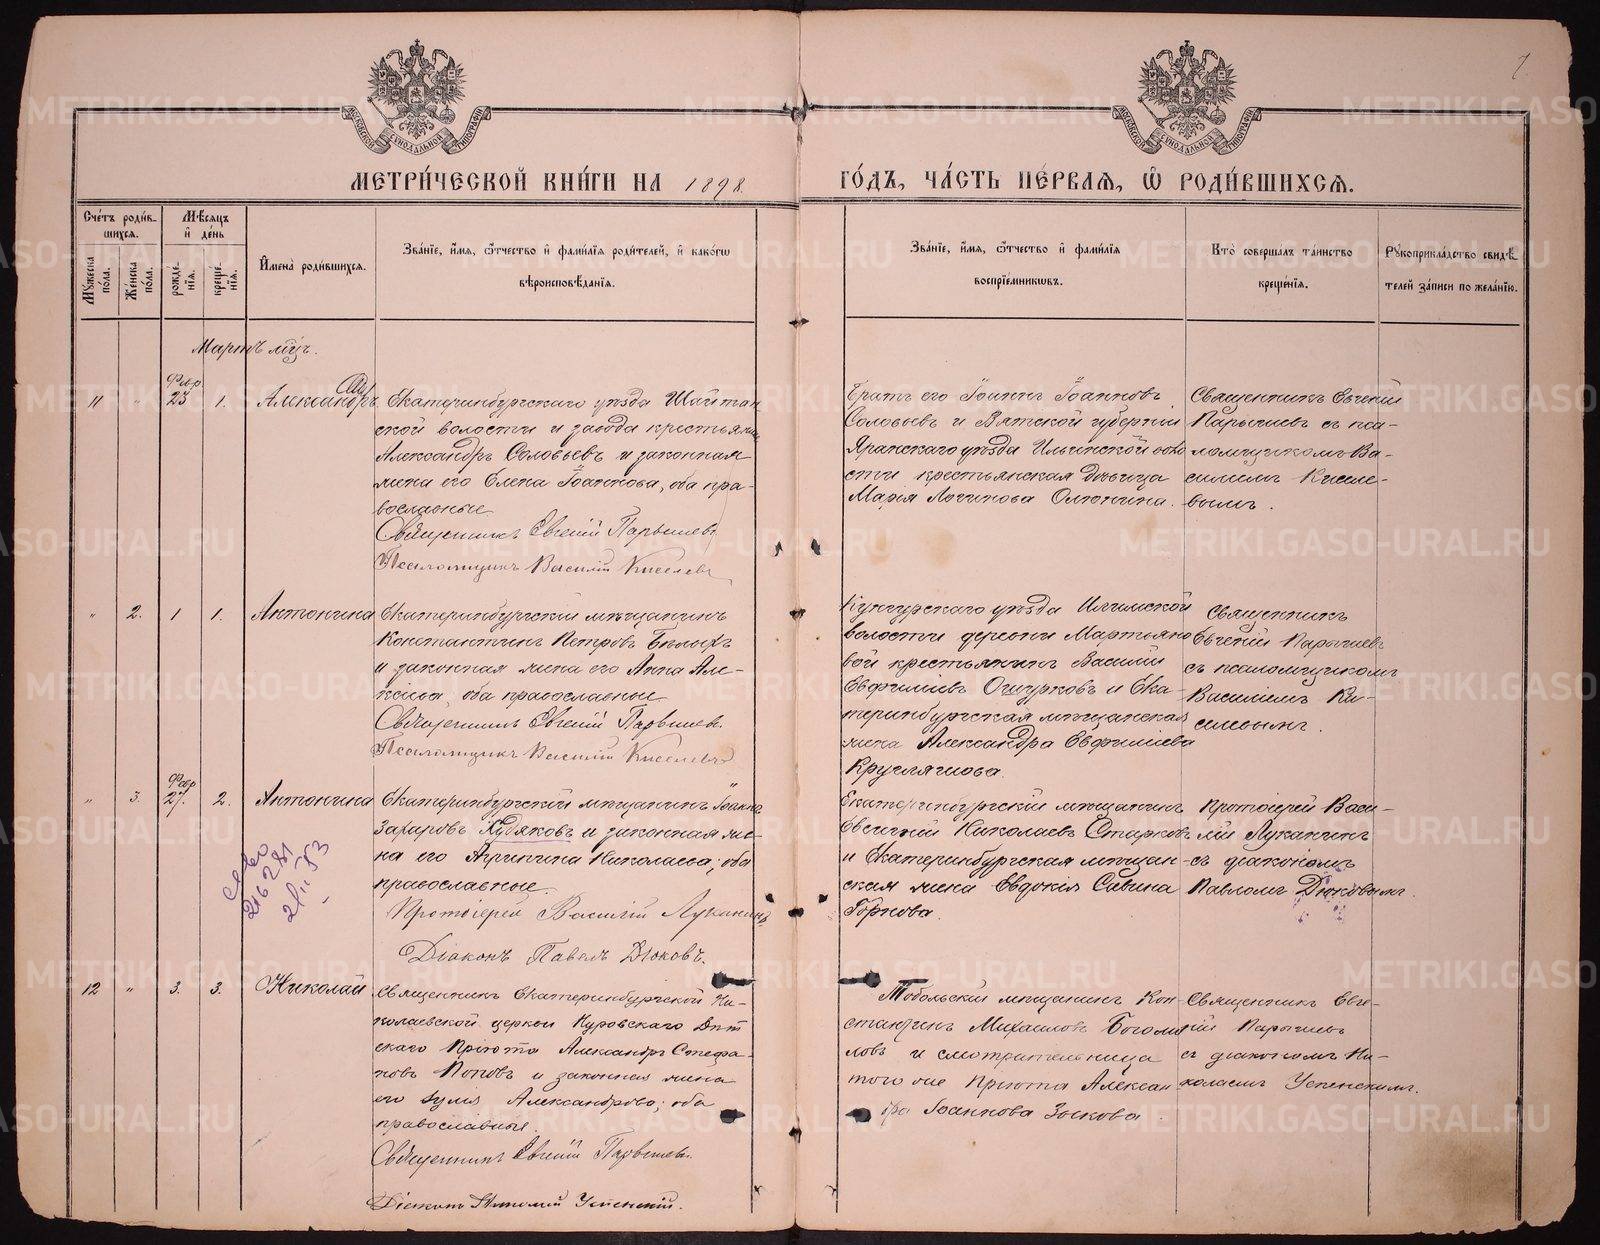 МОСКОВСКОЙ СѴНОДАЛЬНОЙ ТИПОГРАФІИ
МОСКОВСКОЙ СѴНОДАЛЬНОЙ ТИПОГРАФІИ
7
МЕТРИ́ЧЕСКОЙ КНИ́ГИ НА 1898 ГО́ДЪ, ЧА́СТЬ ПЕ́РВАЯ, Ѡ РОДИ́ВШИХСЯ.
Сче́тъ роди́вшихся.
Мѣ́сяцъ и де́нь
Му́жеска по́ла.
Же́нска по́ла.
рожде́нїя.
креще́нїя.
И́мена роди́вшихся.
Зва́нїе, и́мя, ѻ́тчество и фами́лїя роди́телей, и како́гѡ
вѣроисповѣ́данїя.
Зва́нїе, и́мя, ѻ́тчество и фами́лїя
воспрїе́мникѡвъ.
Кто̀ соверша́лъ та́инство
креще́нїя.
Рꙋкоприкла́дство свидѣ́-
телей за́писи по жела́нїю.
Мартъ мцъ.
11 " Февр. 23 1. Александръ
Екатеринбургскаго уѣзда Шайтан
ской волости и завода крестьянинъ
Александръ Соловьевъ и законная
жена его Елена Іоаннова, оба пра-
вославные
Священникъ Евгеній Парышевъ
Псаломщикъ Василій Киселевъ
Братъ его Іоаннъ Іоанновъ
Соловьевъ и Вятской губерніи
Яранскаго уѣзда Ильинской воло
сти крестьянская дѣвица
Марія Логинова
Священникъ Евгеній
Парышевъ съ пса-
ломщикомъ Ва-
силіемъ Киселе-
вымъ.
" 2. 1 1. Антонина
Екатеринбургскій мѣщанинъ
Константинъ Петровъ Бѣлыхъ
и законная жена его Анна Але-
ксіева, оба православные
Священникъ Евгеній Парышевъ.
Псаломщикъ Василій Киселевъ
Кунгурскаго уѣзда Илимской
волости деревни Мартьяно
вой крестьянинъ Василій
Евфиміевъ Ошурковъ и Ека-
теринбургская мѣщанская
жена Александра Евфиміева
Кругляшова.
Священникъ
Евгеній Парышевъ
съ псаломщикомъ
Василіемъ Ки-
селевымъ.
" 3. Февр 27. 2. Антонина
Екатеринбургскій мѣщанинъ Іоаннъ
Захаровъ Худяковъ и законная же-
на его Агрипина Николаева, оба
православные.
Протоіерей Василій Луканинъ
Діаконъ Павелъ Дюковъ.
Екатеринбургскій мѣщанинъ
Евгеній Николаевъ Старковъ
и Екатеринбургская мѣщан-
ская жена Евдокія Савина
Горнова.
Протоіерей Васи-
лій Луканинъ
съ діакономъ
Павломъ Дюковымъ.
216281
2/II 53
12 " 3. 3. Николай
Священникъ Екатеринбургской Ни-
колаевской церкви Нуровскаго Дѣт
скаго Пріюта Александръ Стефа-
новъ Поповъ и законная жена
его Юлія Александрова; оба
православные.
Священникъ Евгеній Парышевъ.
Діаконъ Николай Успенскій.
Тобольскій мѣщанинъ Кон-
стантинъ Михаиловъ Богомо
ловъ и смотрительница
того же Пріюта Алексан
дра Іоаннова Зыкова.
Священникъ Евге-
ній Парышевъ
съ діакономъ Ни-
колаемъ Успенскимъ.
METRIKI.GASO-URAL.RU